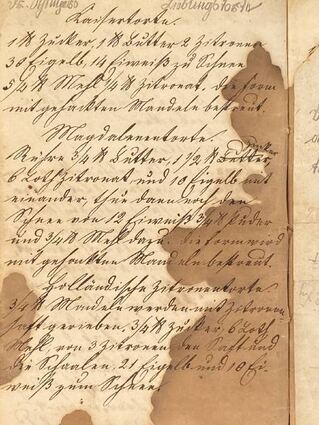 Kaisertorte.
1 ℔ Zucker, 1 ℔ Butter 2 Zitronen
30 Eigelb, 14 Eiweiß zu Schnee
5/4 ℔ Mehl 1/4 ℔ Zitronat, die form
mit gehackten Mandeln bestreut.
Magdalenentorte.
Rühre 3/4 ℔ Butter, 1 1/2 ℔ Butter, Zucker
6 Loth Zitronat und 18 Eigelb mit
einander, thue dann noch den
Schnee von 12 Eiweiß 3/4 ℔ Puder
und 3/4 ℔ Mehl dazu. die form wird
mit gehackten Mandeln bestreut.
Holländische Zitronentorte.
3/4 ℔ Mandeln werden mit Zitronen
saft gerieben. 3/4 ℔ Zucker 6 Loth
Mehl von 3 Zitronen den Saft und
die Schaalen, 21 Eigelb und 18 Ei-
weiß zum Schnee.